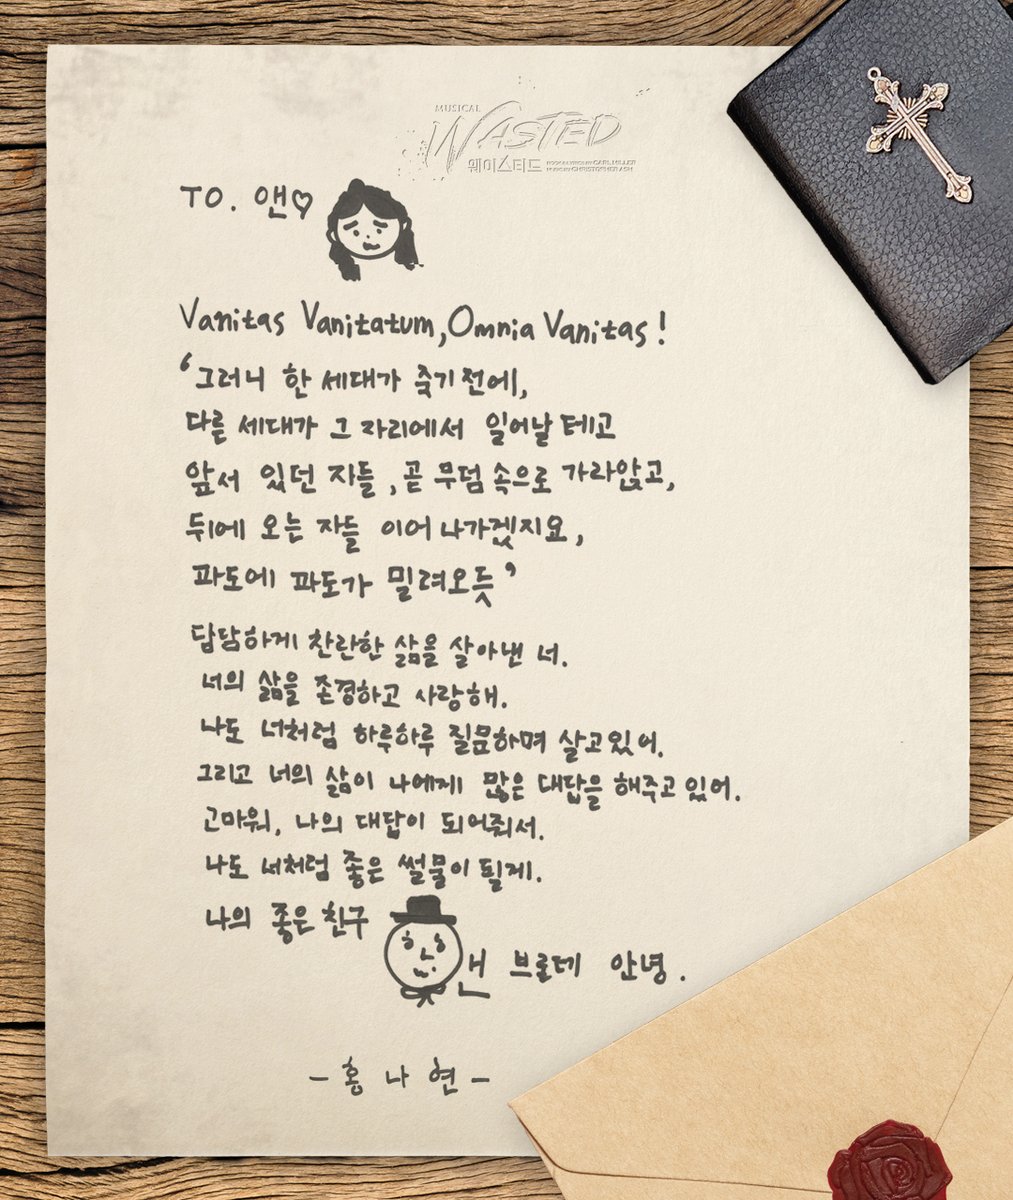 MUSICAL
WASTED
웨이스티드
BOOK & LYRICS BY CARL MILLER
MUSIC BY CHRISTOPHER ASH
TO. 앤♡
Vanitas Vanitatum, Omnia Vanitas!
'그러니 한 세대가 죽기 전에,
다른 세대가 그 자리에서 일어날 테고
앞서 있던 자들, 곧 무덤 속으로 가라앉고,
뒤에 오는 자들 이어 나가겠지요,
파도에 파도가 밀려오듯'
담담하게 찬란한 삶을 살아낸 너.
너의 삶을 존경하고 사랑해.
나도 너처럼 하루하루 질문하며 살고있어.
그리고 너의 삶이 나에게 많은 대답을 해주고 있어.
고마워, 나의 대답이 되어줘서.
나도 너처럼 좋은 썰물이 될게.
나의 좋은 친구
앤 브론테 안녕.
- 홍 나 현 -